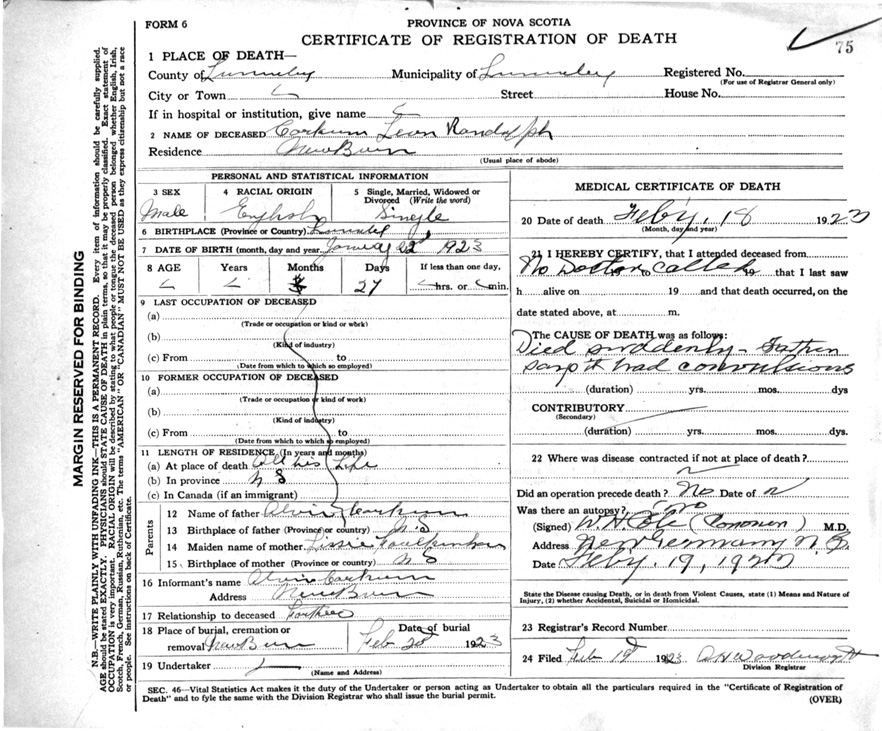 FORM 6
PROVINCE OF NOVA SCOTIA
CERTIFICATE OF REGISTRATION OF DEATH
75
1 PLACE OF DEATH—
County of Lunenburg Municipality of Lunenburg Registered No.
(For use of Registrar General only)
City or Town Street House No.
If in hospital or institution, give name
2 NAME OF DECEASED Corkum Leon Randolph
Residence New Burn
(Usual place of abode)
PERSONAL AND STATISTICAL INFORMATION
3 SEX 4 RACIAL ORIGIN 5 Single, Married, Widowed or
Divorced (Write the word)
Male English Single
6 BIRTHPLACE (Province or Country)
7 DATE OF BIRTH (month, day and year) January 22d 1923
8 AGE Years Months Days If less than one day,
27 hrs. or min.
9 LAST OCCUPATION OF DECEASED
(a)
(Trade or occupation or kind or work)
(b)
(Kind of industry)
(c) From to
(Date from which to which so employed)
10 FORMER OCCUPATION OF DECEASED
(a)
(Trade or occupation or kind of work)
(b)
(Kind of industry)
(c) From to
(Date from which to which so employed)
11 LENGTH OF RESIDENCE (In years and months)
(a) At place of death All his Life
(b) In province N S
(c) In Canada (if an immigrant)
Parents
12 Name of father Alvin Corkum
13 Birthplace of father (Province or country) N.S
14 Maiden name of mother Lissie
15 Birthplace of mother (Province or country) N S
16 Informant's name Alvin Corkum
Address New Burn
17 Relationship to deceased Father
18 Place of burial, cremation or Date of burial
removal New Burn Feb 20 1923
19 Undertaker
(Name and Address)
MEDICAL CERTIFICATE OF DEATH
20 Date of death Feby. 18 1923
(Month, day and year)
21 I HEREBY CERTIFY, that I attended deceased from
No Doctor Called 19 to 19 that I last saw
h alive on 19 and that death occurred, on the
date stated above, at m.
The CAUSE OF DEATH was as follows:
Died suddenly - Father
says it had convulsions
(duration) yrs. mos. dys
CONTRIBUTORY
(Secondary)
(duration) yrs. mos. dys.
22 Where was disease contracted if not at place of death?
Did an operation precede death? No Date of
Was there an autopsy?
(Signed) W H Cole (Coroner) M.D.
Address New Germany N.S.
Date Feby. 19, 1923
State the Disease causing Death, or in death from Violent Causes, state (1) Means and Nature of
Injury, (2) whether Accidental, Suicidal or Homicidal.
23 Registrar's Record Number
24 Filed Feb 19 1923
Division Registrar
SEC. 46—Vital Statistics Act makes it the duty of the Undertaker or person acting as Undertaker to obtain all the particulars required in the "Certificate of Registration of
Death" and to fyle the same with the Division Registrar who shall issue the burial permit.
(OVER)
MARGIN RESERVED FOR BINDING
N.B.—WRITE PLAINLY WITH UNFADING INK—THIS IS A PERMANENT RECORD. Every item of information should be carefully supplied.
AGE should be stated EXACTLY. PHYSICIANS should STATE CAUSE OF DEATH in plain terms, so that it may be properly classified. Exact statement of
OCCUPATION is very important. RACIAL ORIGIN will be described by stating to what people or tongue the deceased person belonged whether English, Irish,
Scotch, French, German, Russian, Ruthenian, etc. The terms "AMERICAN" OR "CANADIAN" MUST NOT BE USED as they express citizenship but not a race
or people. See instructions on back of Certificate.